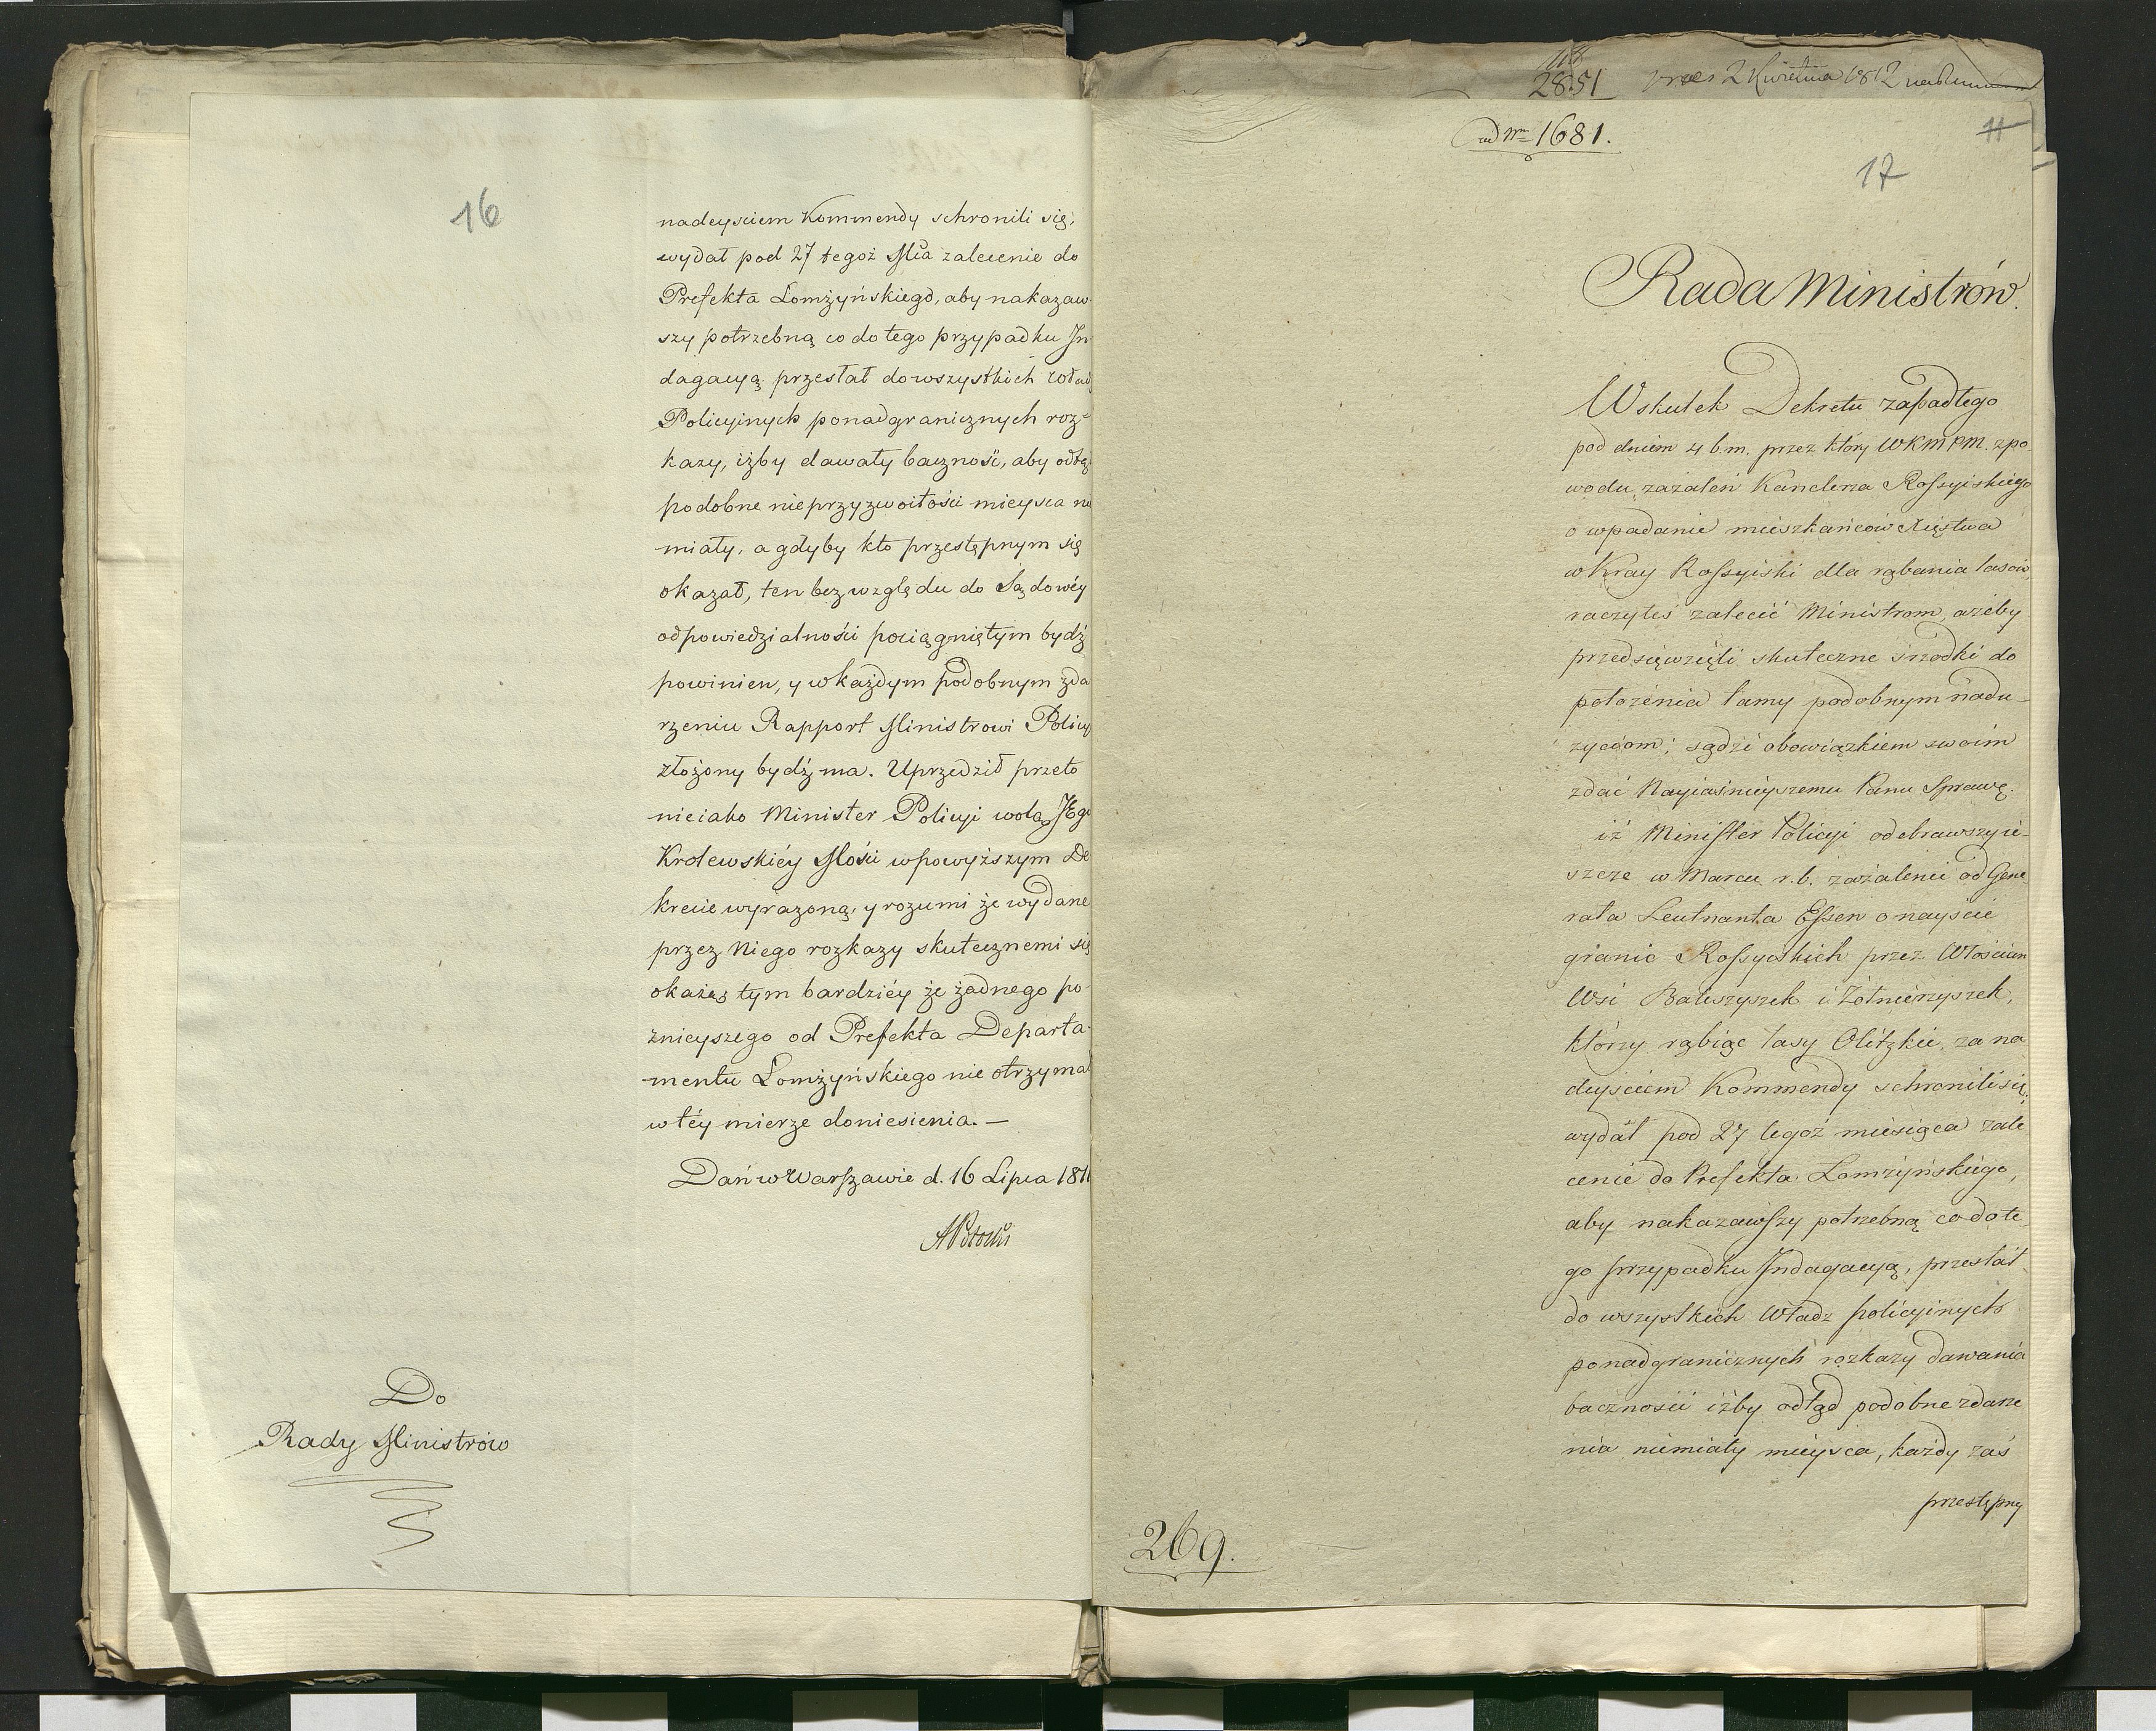 16
nadeysciem Kommendy schronili się,
wydał pod 27 tegoż Mca zalecenie do
Prefekta Lomżyńskiego, aby nakazaw-
szy potrzebną co do tego przypadku In-
dagacyą przesłał do wszystkich
Policyinych ponadgranicznych roz-
kazy, iżby dawały baczność, aby odtą
podobne nieprzyzwoitości mieysca
miały, a gdyby kto przestępnym się
okazał, ten bez względu do Sądowéy
odpowiedzialności pociągniętym bydź
powinien, y w każdym podobnym zda
rzeniu Rapport Ministrowi Policy
złożony bydź ma. Uprzedził przeto
nieiako Minister Policyi wolą JEg
Krolewskiéy Mości w powyższym De
krecie wyrażoną, y rozumi że wydane
przez Niego rozkazy skutecznemi się
okażą, tym bardziéy że żadnego po-
znieyszego od Prefekta Departa-
mentu Lomżyńskiego nie otrzymał
w téy mierze doniesienia. —
Dań w Warszawie d. 16 Lipca 181
APotocki
Do
Rady Ministrów
2851 2 Kwietnia 1812
ad Nrm 1681.
11
17
Rada Ministrów.
Wskutek Dekretu zapadłego
pod dniem 4 b.m. przez który WKMPM. zpo
wodu zażaleń Kanclerza Rossyiskiego
o wpadanie mieszkańców Xięstwa
w Kray Rossyiski dla rąbania lasów,
raczyłeś zalecić Ministrom, ażeby
przedsięwzięli skuteczne środki do
położenia tamy podobnym nadu-
życiom; sądzi obowiązkiem swoim
zdać Nayiaśnieyszemu Panu Sprawę.
iż Minister Policyi odebrawszy ie-
szcze w Marcu r.b. zażalenie od Gene
rała Leutnanta Essen o nayście
granic Rossyiskich przez Włościan
Wsi Baliszyszek i Żołnierzyszek,
którzy rąbiąc lasy Olitzkie, za na
deysciem Kommendy schronili się,
wydał pod 27 tegoż miesiąca zale
cenie do Prefekta Lomżyńskiego,
aby nakazawszy potrzebną co do te
go przypadku Indagacyą, przesłał
do wszystkich Władz policyinych
ponadgranicznych rozkazy dawania
baczności iżby odtąd podobne zdarze
nia niemiały mieysca, każdy zaś
przestępny
269.